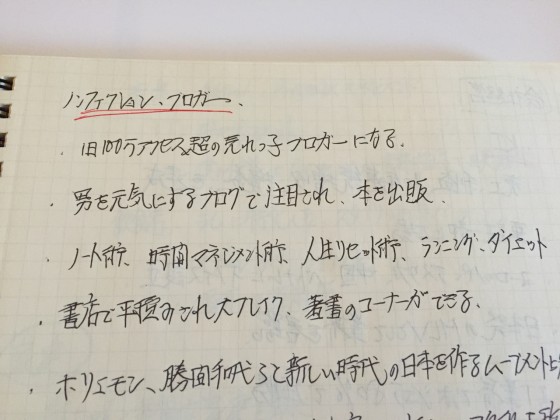 ノンフィクション、ブロガー、
・1日100万アクセス超の売れっ子ブロガーになる。
・男を元気にするブログで注目され、本を出版。
・ノート術、時間マネジメント術、人生リセット術、ランニング、ダイエット
・書店で平積みされ大ブレイク、著書のコーナーができる。
・ホリエモン、勝間和代らと新しい時代の日本を作るムーブメント